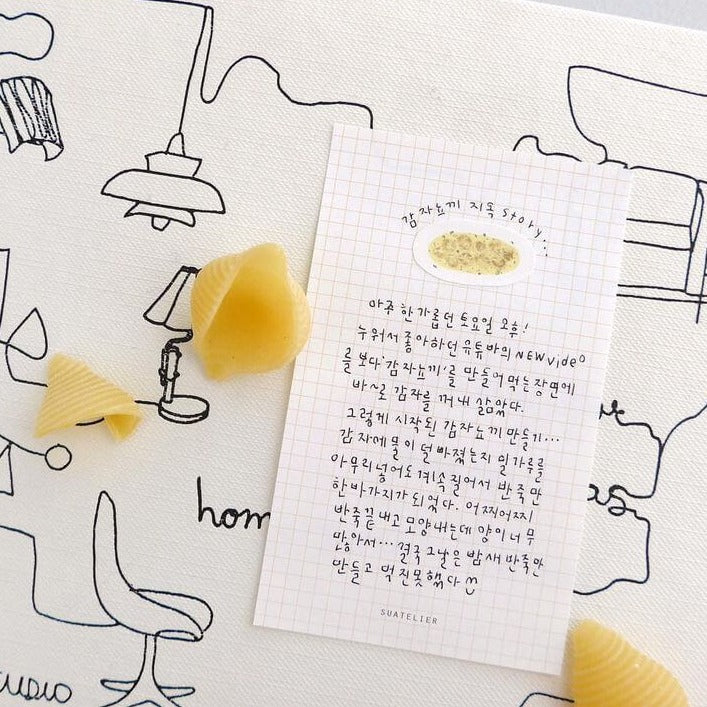 감자뇨끼 지옥 story...
아주 한가롭던 토요일 오후!
누워서 좋아하던 유튜바의 NEW video
를 보다 '감자뇨끼'를 만들어 먹는 장면에
바~로 감자를 꺼내 삶았다.
그렇게 시작된 감자뇨끼 만들기...
감자에 물이 덜 빠졌는지 밀가루를
아무리 넣어도 계속 질어서 반죽만
한 바가지가 되었다. 어찌어찌
반죽 끝내고 모양내는데 양이 너무
많아서... 결국 그날은 밤새 반죽만
만들고 먹진 못했다
SUATELIER
hom
as
UDIO